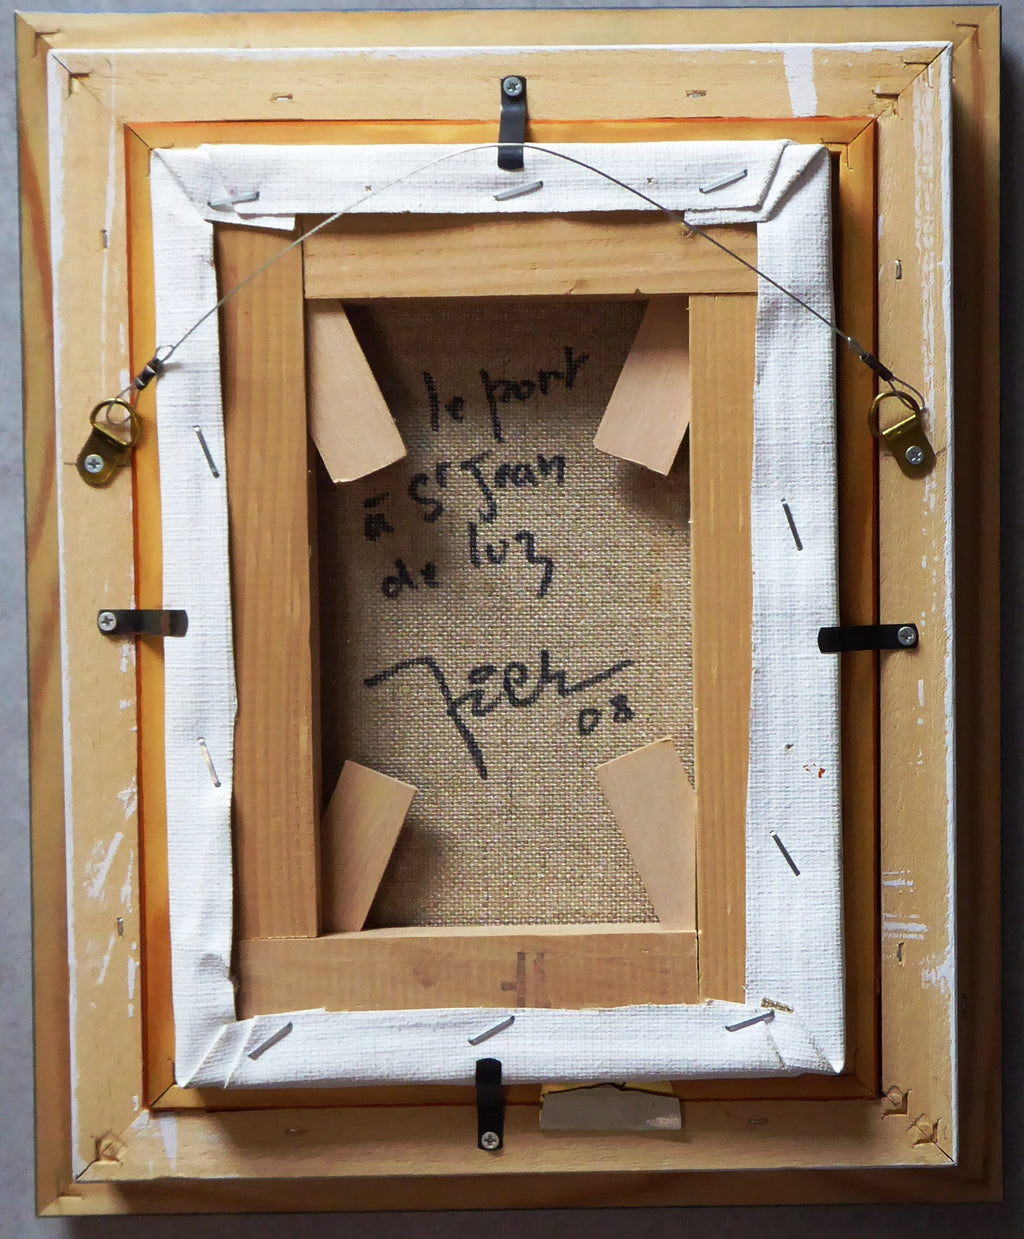 le port
à St Jean
de luz
08